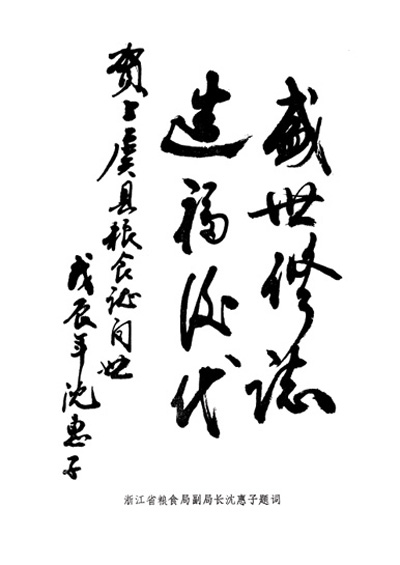 盛世修誌
造福后代
贺上虞县粮食志问世
戊辰年沈惠子
浙江省粮食局副局长沈惠子题词